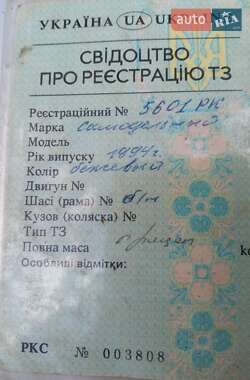 УКРАЇНА UA UK
AUTO RIA
СВІДОЦТВО
ПРО РЕЄСТРАЦІЮ ТЗ
Реєстраційний № 5601 РК
Марка самодельный
Модель
Рік випуску 1994г.
Колір бежевый
Двигун №
Шасі (рама) № б/н
Кузов (коляска) №
Тип ТЗ прицеп
Повна маса
Особливі відмітки:
РКС № 003808